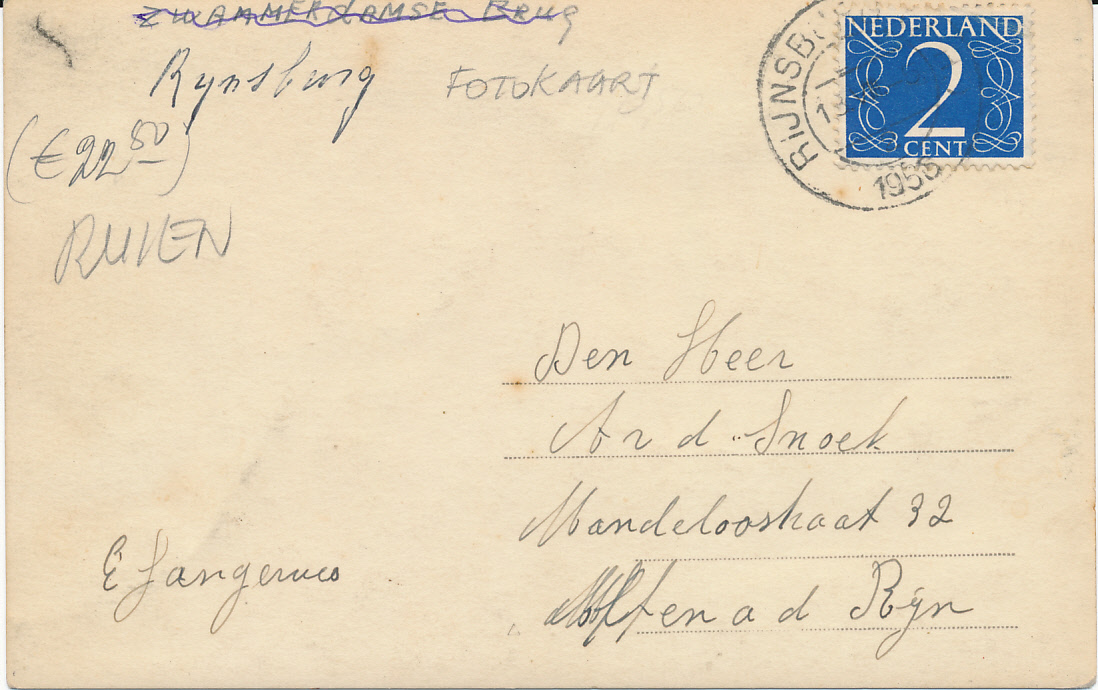 ZWAMMERDAMSE BRUG
Rynsburg FOTOKAART
(€ 22 50)
RUILEN
RIJNSBURG
1955
NEDERLAND
2
CENT
Den Heer
A v d Snoek
Mandeloostraat 32
Alfen a d Rijn
E